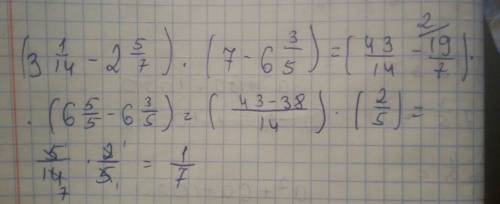 (3 1/14 - 2 5/7) · (7 - 6 3/5) = (43/14 - 2/ 19/7) ·
· (6 5/5 - 6 3/5) = (43-38/14) · (2/5) =
5/14 7 · 2 1/5 1 = 1/7